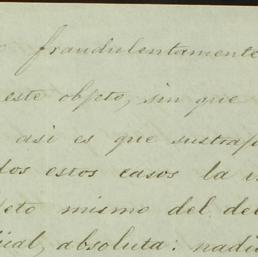 fraudulentamente
este objeto, sin que
asi es que sustra
dos estos casos la
eto mismo del de
absoluta: nadi